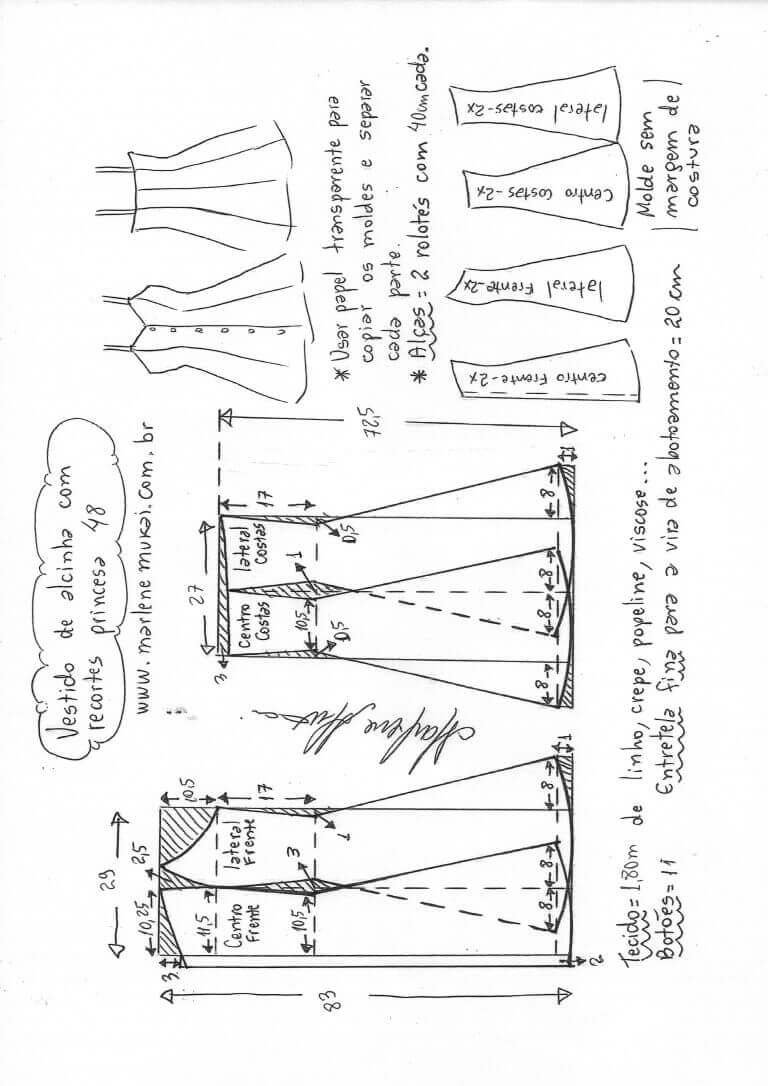 Vestido de alcinha com
recortes princesa 48
www.marlenemukai.com.br
* Usar papel transparente para
copiar os moldes e separar
cada parte.
* Alças = 2 rolotés com 40cm cada.
29
10,25
2,5
10,5
3
11,5
17
Centro
Frente
lateral
Frente
10,5
3
1
83
8
8
8
2
1
Marlene Mukai
27
3
17
Centro
Costas
lateral
Costas
10,5
0,5
1
0,5
72,5
8
8
8
8
1
Centro Frente-2x
lateral Frente-2x
Centro Costas-2x
lateral costas-2x
Molde sem
margem de
costura
Tecido= 1,80m de linho, crepe, popeline, viscose...
Botões= 11 Entretela fina para a vira de abotoamento= 20 cm